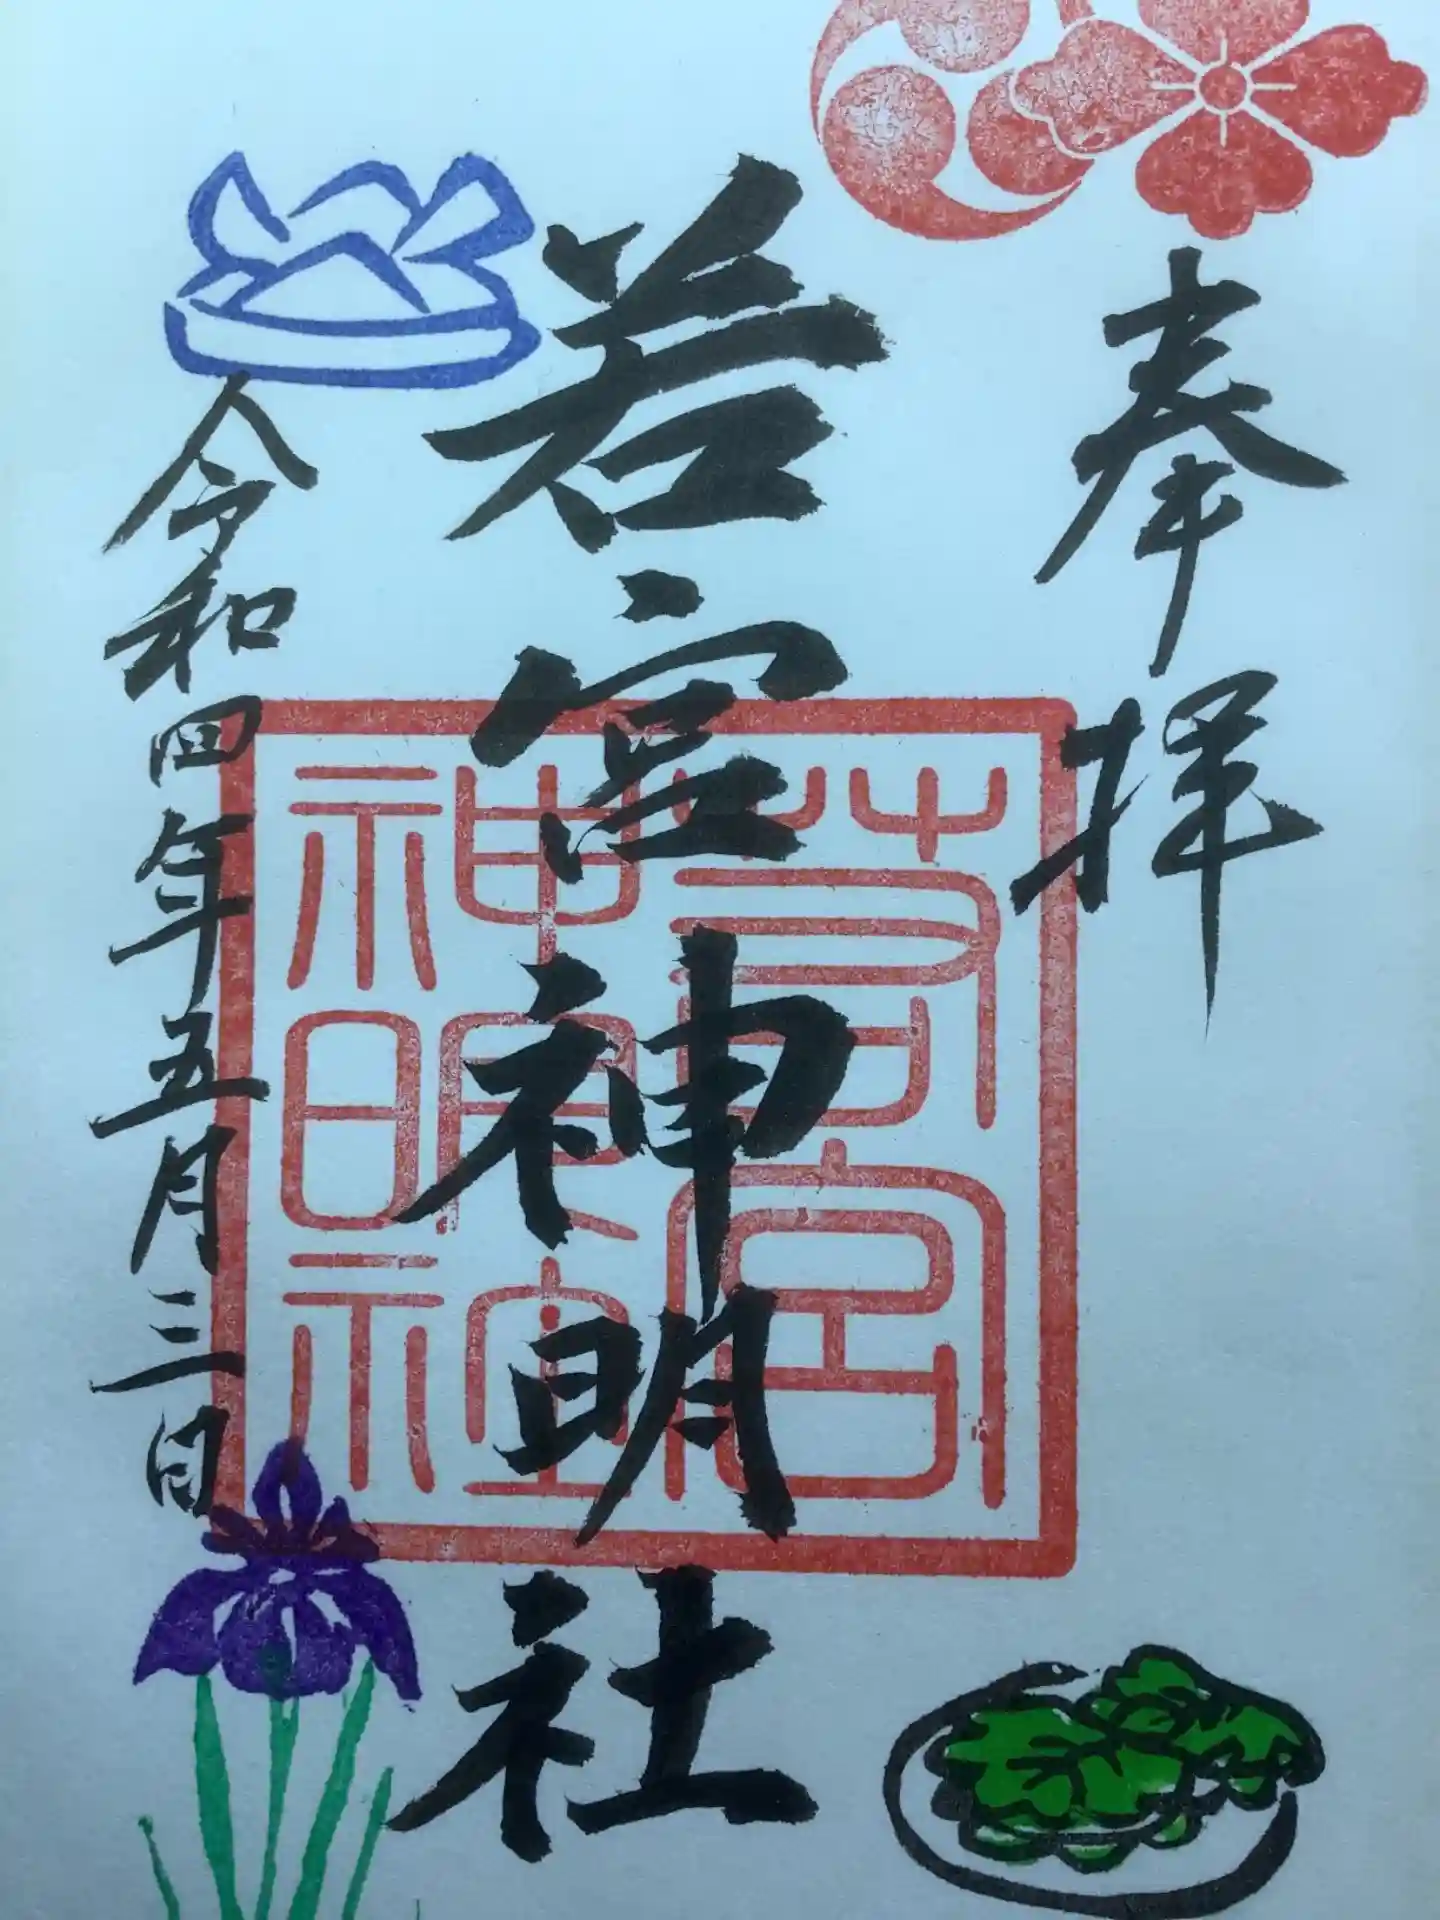 奉拝
若宮神明社
若宮
神明社
令和四年五月三日